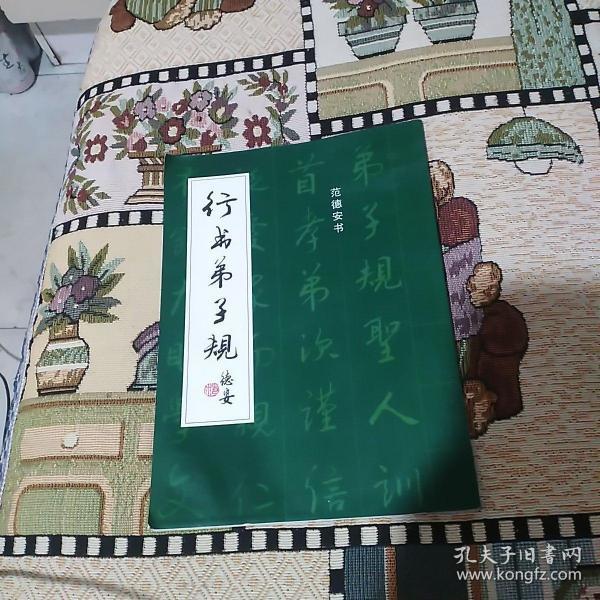 行书弟子规
德安
范德安书
弟子規聖人訓
首孝弟次謹信
孔夫子旧书网
www.kongfz.com